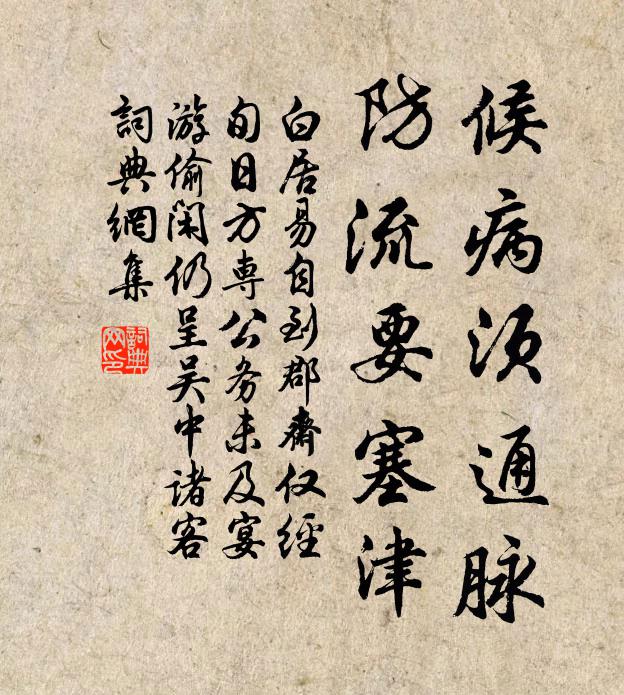 候病須通脉
防流要塞津
白居易自到郡齋仅經
旬日方專公务未及宴
游偷闲仍呈吴中诸客
詞典網集
詞典網印